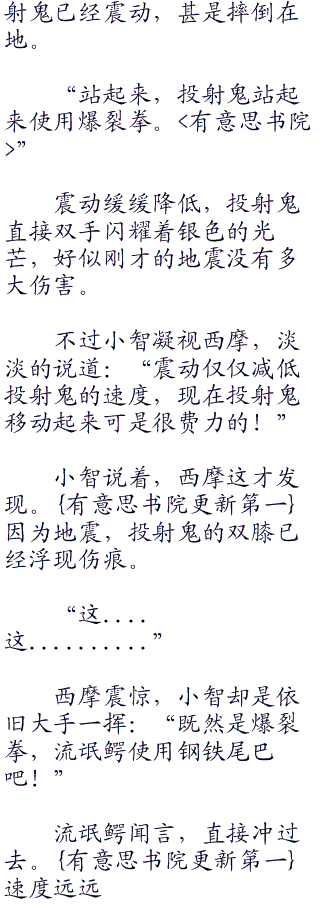 射鬼已经震动，甚是摔倒在
地。
“站起来，投射鬼站起
来使用爆裂拳。<有意思书院
>”
震动缓缓降低，投射鬼
直接双手闪耀着银色的光
芒，好似刚才的地震没有多
大伤害。
不过小智凝视西摩，淡
淡的说道：“震动仅仅减低
投射鬼的速度，现在投射鬼
移动起来可是很费力的！”
小智说着，西摩这才发
现。{有意思书院更新第一}
因为地震，投射鬼的双膝已
经浮现伤痕。
“这....
这..........”
西摩震惊，小智却是依
旧大手一挥：“既然是爆裂
拳，流氓鳄使用钢铁尾巴
吧！”
流氓鳄闻言，直接冲过
去。{有意思书院更新第一}
速度远远